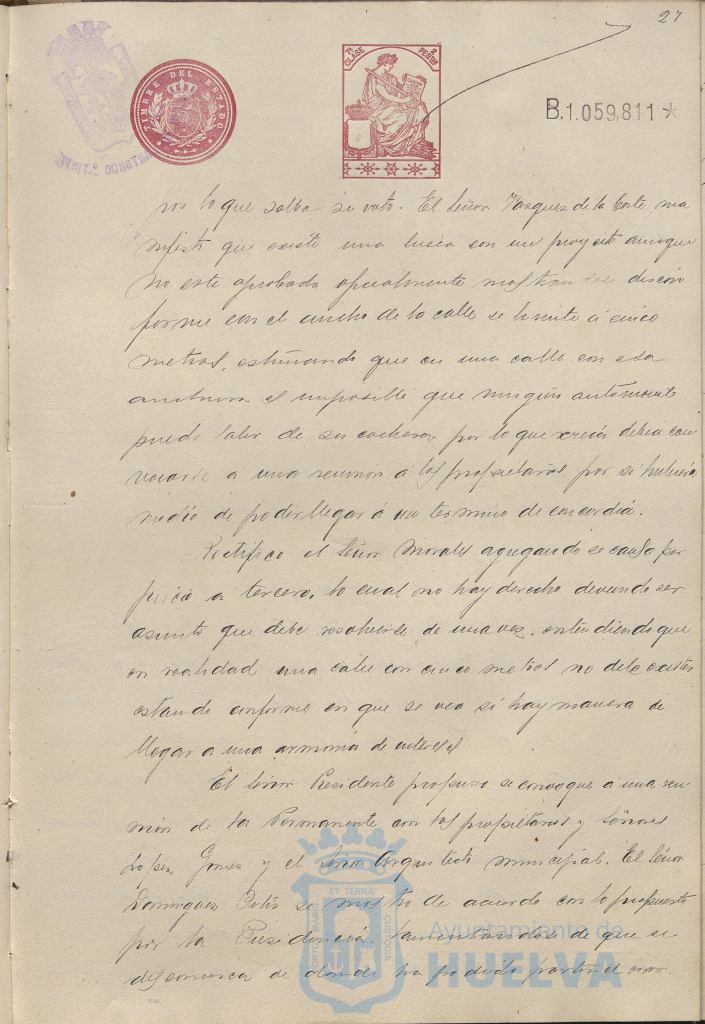 27
TIMBRE DEL ESTADO
7ª CLASE 2 PESTAS
B.1.059,811*
por lo que salba su voto. El Señor Vasquez de la Corte ma
nifestó que existe una linea con un proyecto aunque
no este aprobada oficialmente mostrandose discon
forme con el ancho de la calle se limite á cinco
metros, estimando que en una calle con esa
anchura es imposible que ningún automovil
pueda salir de su cochera por lo que debia con
vocarse á una reunion á los propietarios por si hubiera
medio de poder llegar á un termino de concordia.
Rectifico el Señor Morales agregando se causa per
juicio a tercero, lo cual no hay derecho ser
asunto que debe resolverse de una vez. entendiendo que
en realidad una calle con cinco metros no debe existir
estando conforme en que se vea si hay manera de
llegar a una armonia de intereses
El Señor Presidente propuso se convoque á una reu-
nión de la Permanente con los propietarios y Señores
Lopez Gomez y el Señor Arquitecto municipal. El Señor
Dominguez se mostro de acuerdo con lo propuesto
por la Presidencia lamentandose de que se
desconozca de donde ha podido partir el error.
Ayuntamiento de
HUELVA